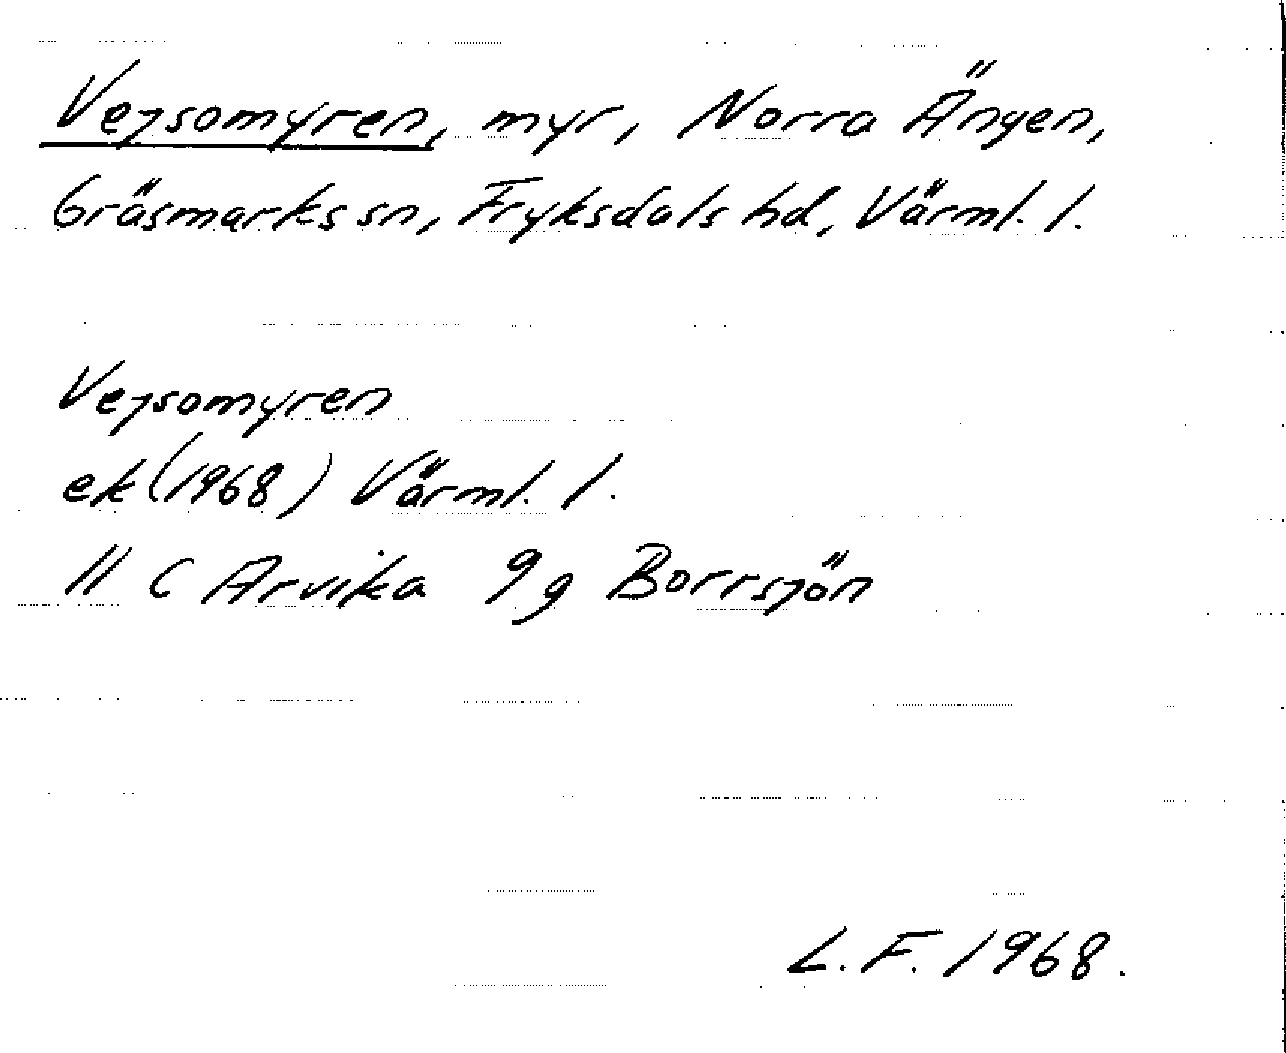 Vejsomyren, myr, Norra Ängen,
Gräsmarks sn, Fryksdals hd, Värml. l.
Vejsomyren
ek (1968) Värml. l.
11 C Arvika 9g Borrsjön
L.F. 1968.